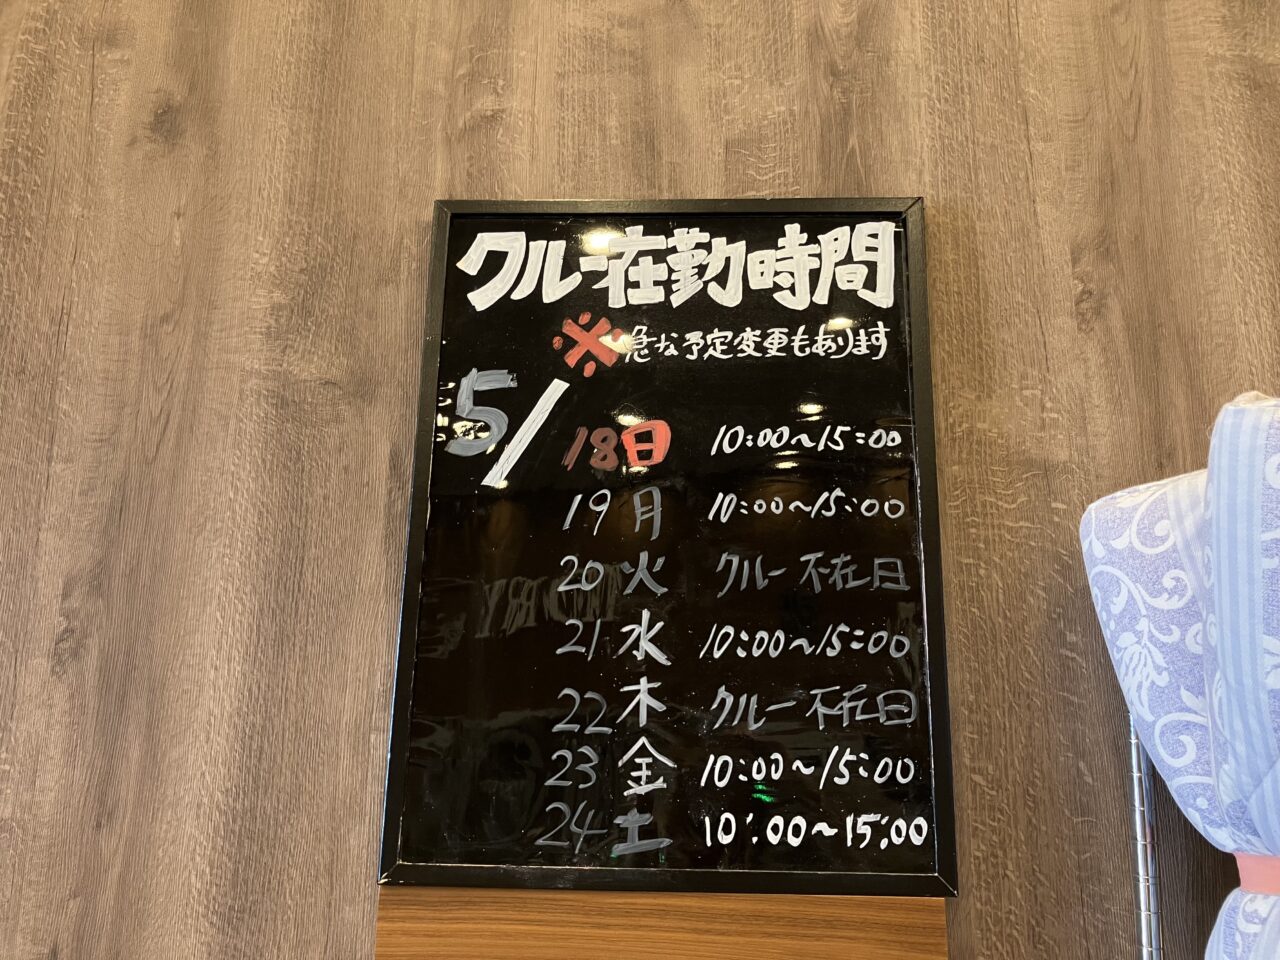 クルー在勤時間
※急な予定変更もあります
5/18日 10:00〜15:00
19月 10:00〜15:00
20火 クルー不在日
21水 10:00〜15:00
22木 クルー不在日
23金 10:00〜15:00
24土 10:00〜15:00